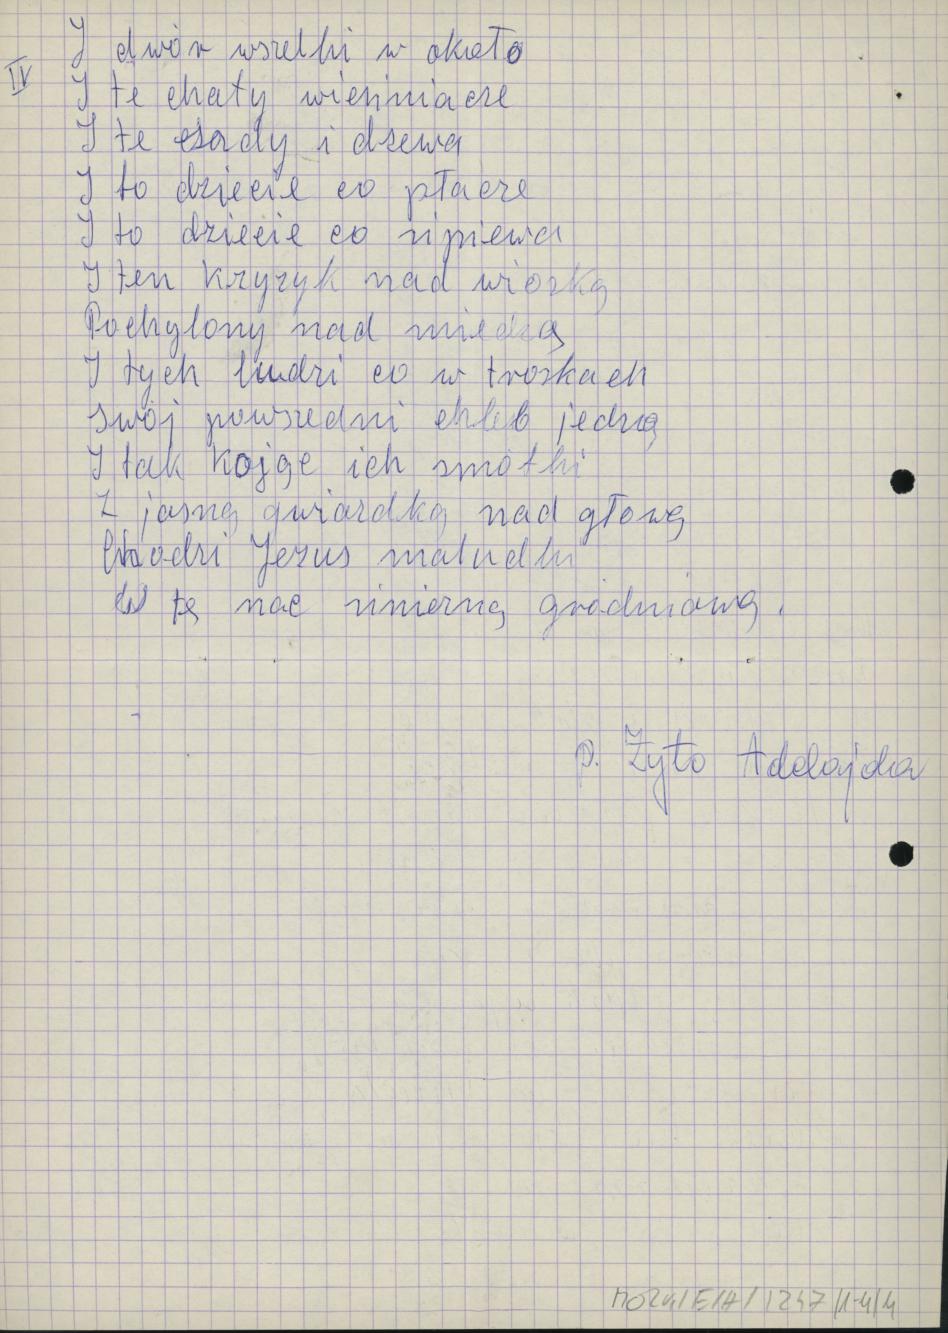 I dwór wszelki w około
IV
I te chaty wieśniacze
I te sady i dzewa
I to dziecie co płacze
I to dziecie co śpiewa
I ten kryzyk nad wioską
Pochylony nad miedzą
I tych ludzi co w troskach
swój powszedni chleb jedzą
I tak kojąc ich smótki
Z jasną gwiazdką nad głową
Chodzi Jezus maludki
W tę noc śnieżną gródniową.
p. Żyto Adelajda